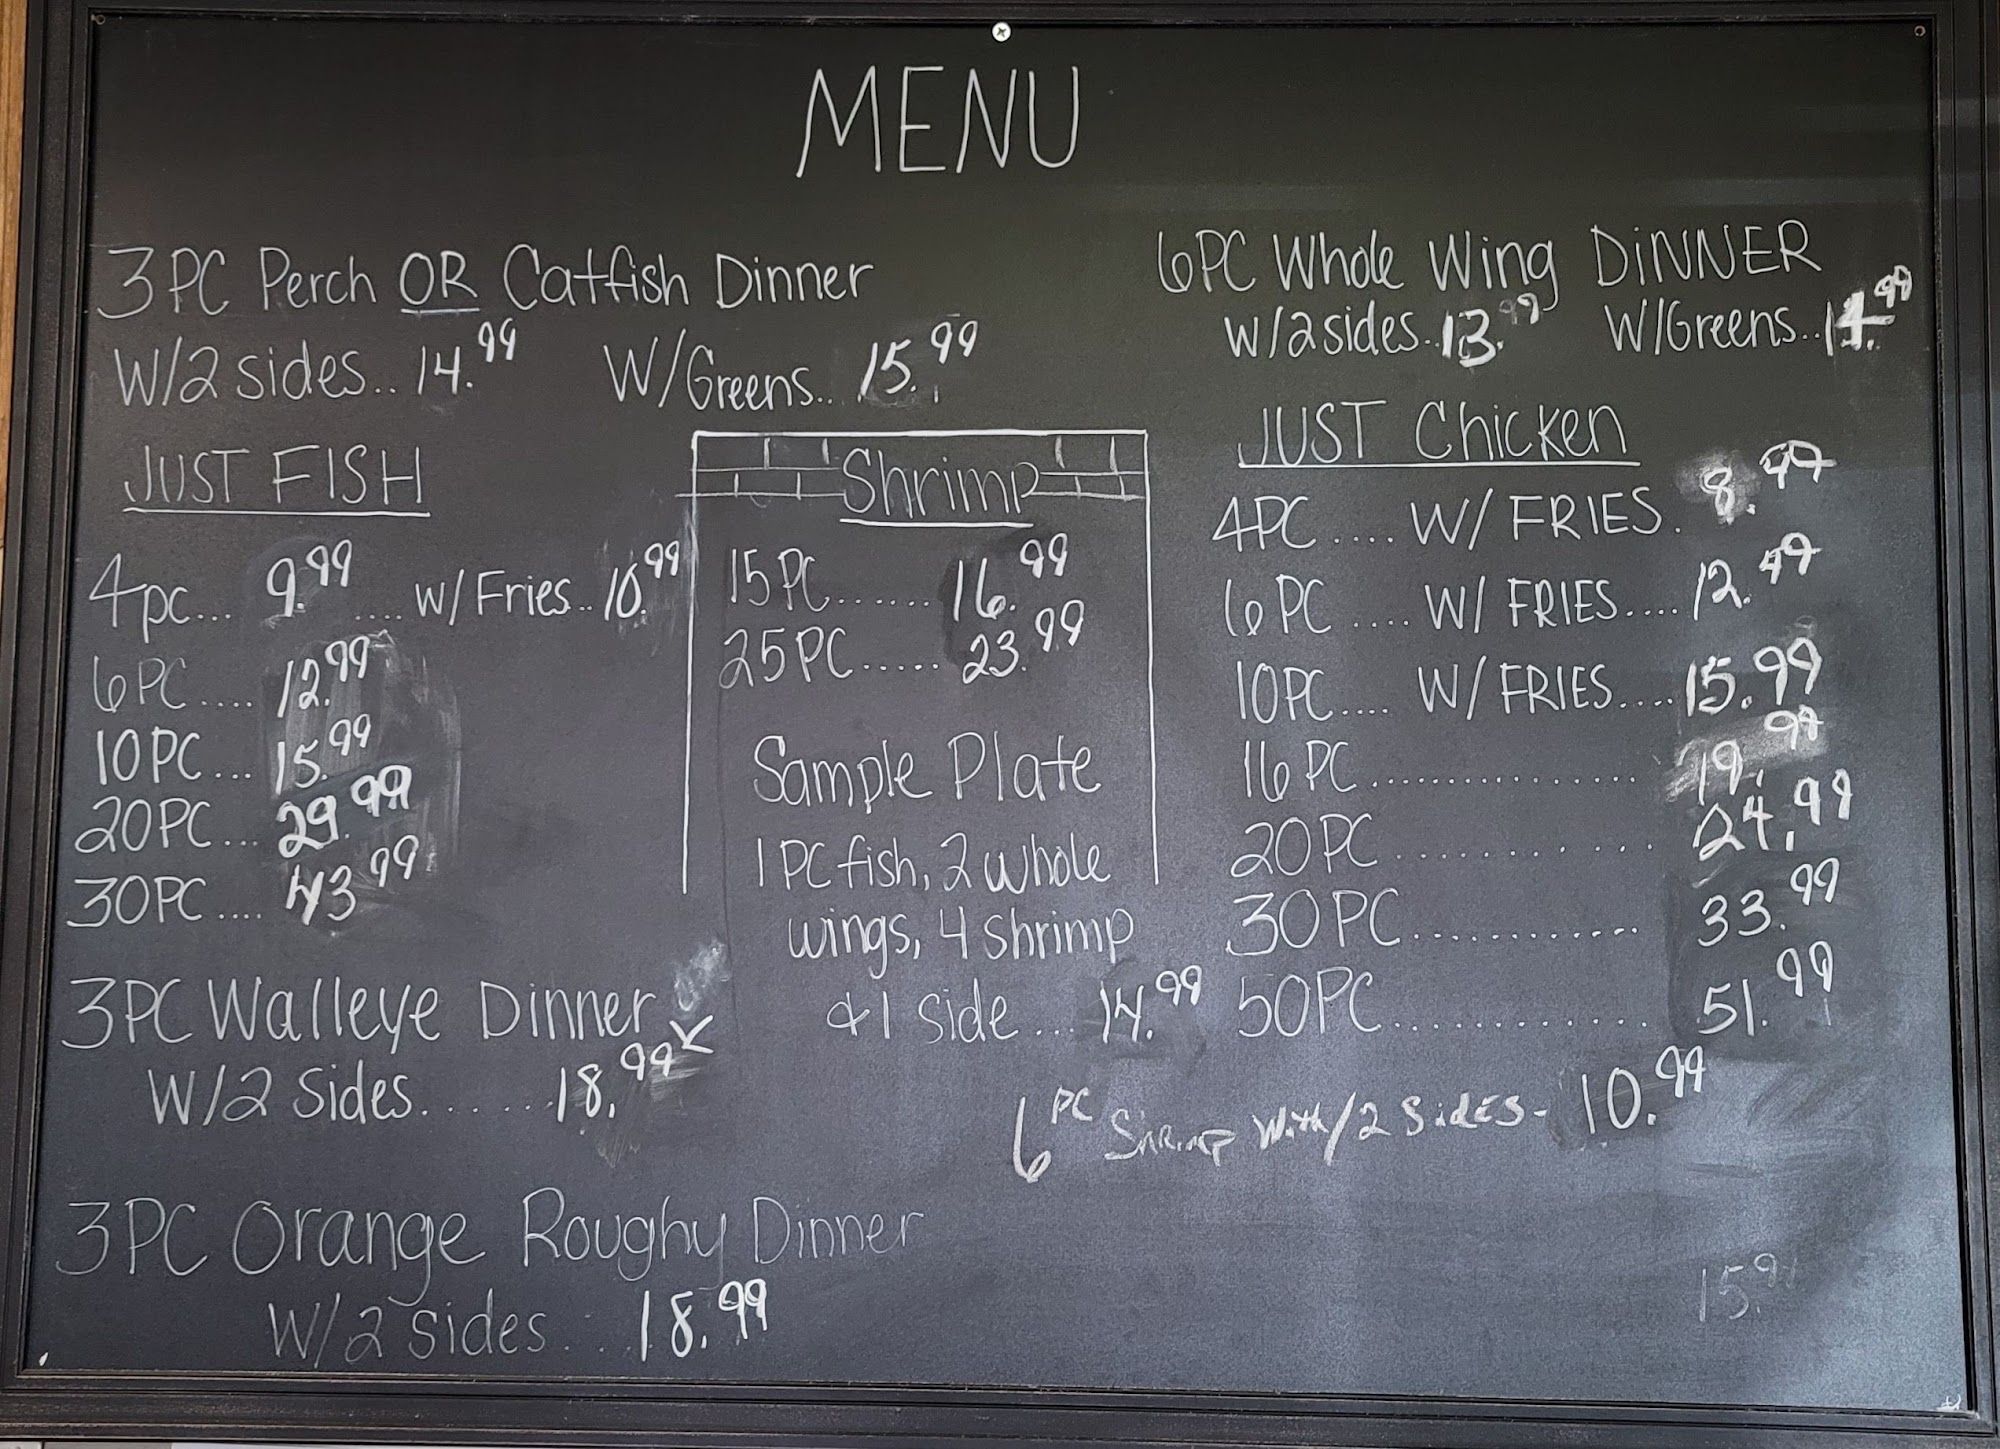 MENU
3PC Perch OR Catfish Dinner
W/2 sides.. 14.99 W/Greens.. 15.99
JUST FISH
4pc... 9.99 .... w/Fries.. 10.99
6PC.... 12.99
10PC... 15.99
20PC... 29.99
30PC.... 43.99
3PC Walleye Dinner
W/2 Sides....... 18.99
3PC Orange Roughy Dinner
W/2 sides... 18.99
Shrimp
15PC...... 16.99
25PC..... 23.99
Sample Plate
1PC fish, 2 whole
wings, 4 shrimp
&1 side... 14.99
6PC Whole Wing DiNNER
W/2sides.. 13.99 W/Greens.. 14.99
JUST Chicken
4PC.... W/ FRIES. 8.99
6PC.... W/ FRIES.... 12.99
10PC.... W/ FRIES.... 15.99
16PC............... 19.99
20PC............ 24.99
30PC............ 33.99
50PC............. 51.99
6PC Shrimp With/2 SidES- 10.99